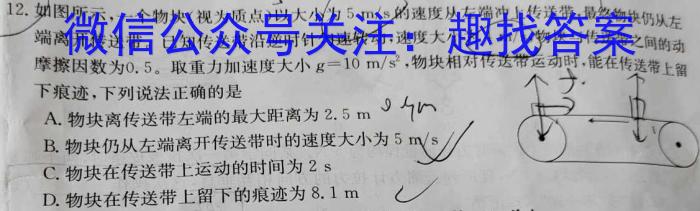 12. 如图所示,一个物块(视为质点)以大小为5 m/s的速度从左端冲上传送带,最终物块仍从左
端离开传送带。已知传送带沿逆时针匀速转动,速度大小
之间的动
微信公众号关注:趣找答案
摩擦因数为0.5。取重力加速度大小g=10 m/s²,物块相对传送带运动时,能在传送带上留
下痕迹,下列说法正确的是
A. 物块离传送带左端的最大距离为2.5 m
B. 物块仍从左端离开传送带时的速度大小为5 m/s
C. 物块在传送带上运动的时间为2 s
D. 物块在传送带上留下的痕迹为8.1 m